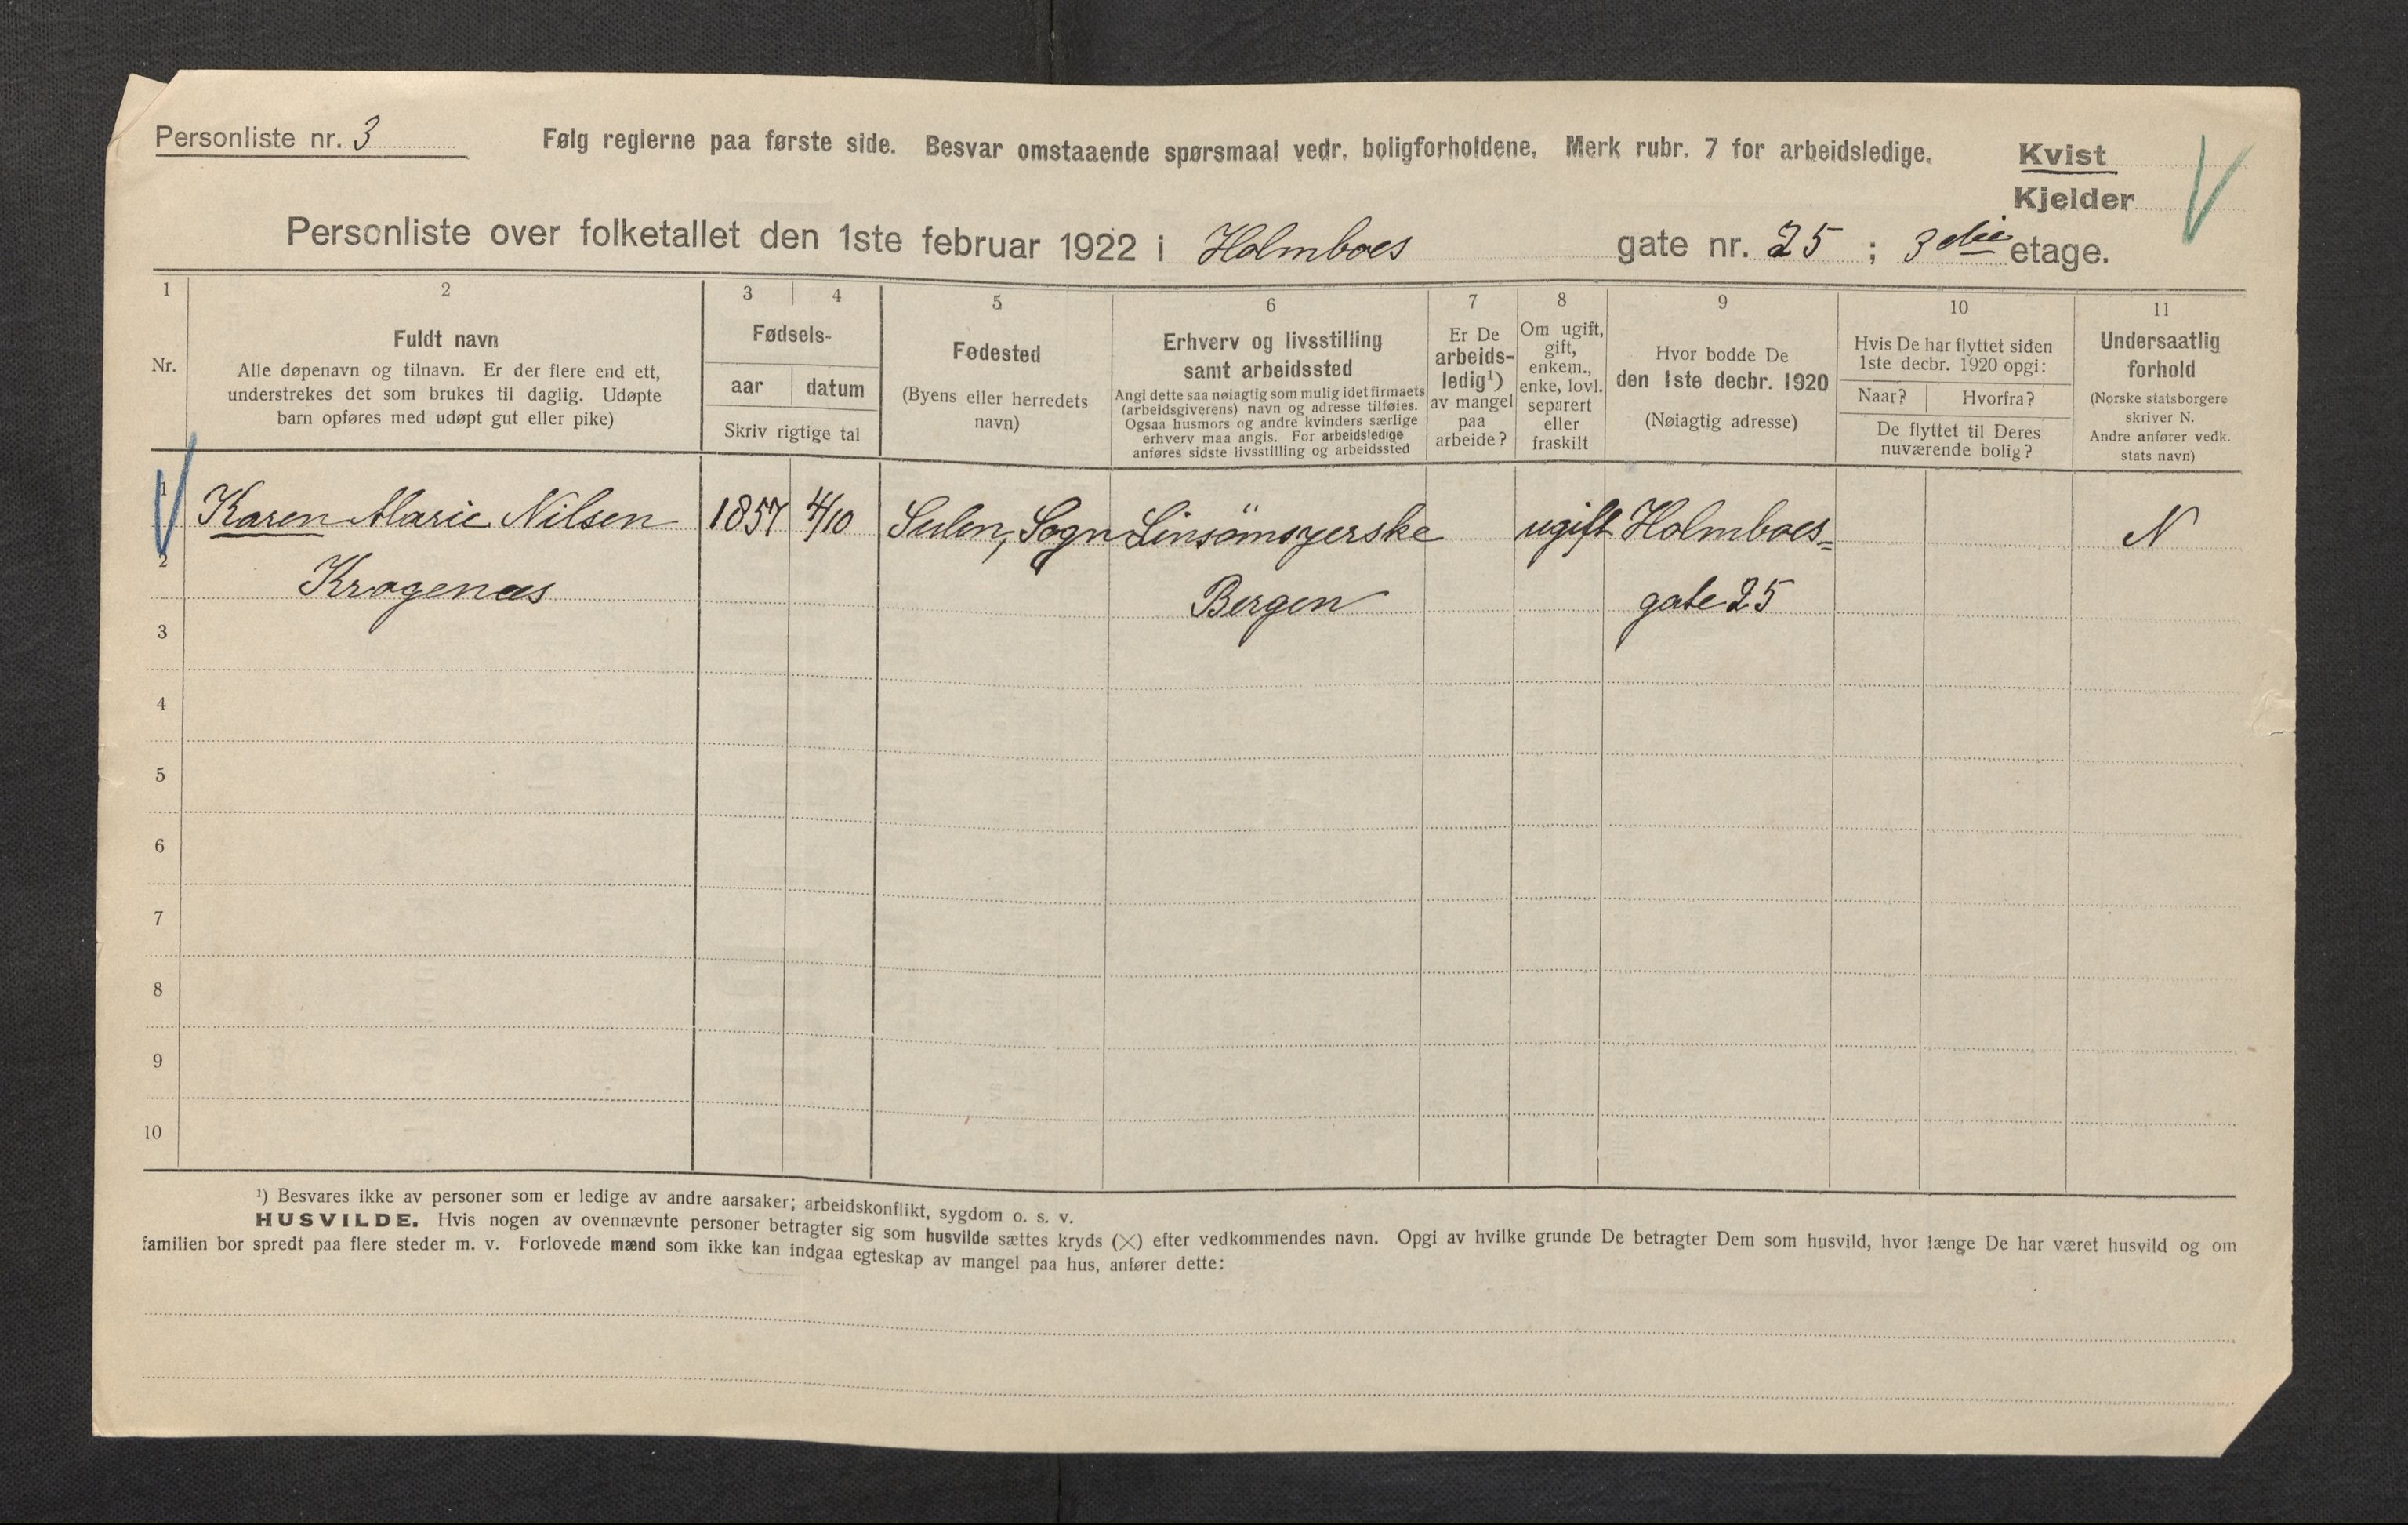 Personliste nr. 3
Følg reglerne paa første side. Besvar omstaaende spørsmaal vedr. boligforholdene. Merk rubr. 7 for arbeidsledige.
Kvist
Kjelder
Personliste over folketallet den 1ste februar 1922 i Holmboes gate nr. 25 ; 3die etage.
1 2 3 4 5 6 7 8 9 10 11
Nr.
Fuldt navn
Alle døpenavn og tilnavn. Er der flere end ett,
understrekes det som brukes til daglig. Udøpte
barn opføres med udøpt gut eller pike)
Fødsels-
aar datum
Skriv rigtige tal
Fødested
(Byens eller herredets
navn)
Erhverv og livsstilling
samt arbeidssted
Angi dette saa nøiagtig som mulig idet firmaets
(arbeidsgiverens) navn og adresse tilføies.
Ogsaa husmors og andre kvinders særlige
erhverv maa angis. For arbeidsledige
anføres sidste livsstilling og arbeidssted
Er De
arbeids-
ledig¹)
av mangel
paa
arbeide?
Om ugift,
gift,
enkem.,
enke, lovl.
separert
eller
fraskilt
Hvor bodde De
den 1ste decbr. 1920
(Nøiagtig adresse)
Hvis De har flyttet siden
1ste decbr. 1920 opgi:
Naar? Hvorfra?
De flyttet til Deres
nuværende bolig?
Undersaatlig
forhold
(Norske statsborgere
skriver N.
Andre anfører vedk.
stats navn)
1 Karen Marie Nilsen 1857 4/10 Sulen, Sogn Linsömsyerske ugift Holmboes= N
2 Kragenæs Bergen gate 25
3
4
5
6
7
8
9
10
¹) Besvares ikke av personer som er ledige av andre aarsaker; arbeidskonflikt, sygdom o. s. v.
HUSVILDE. Hvis nogen av ovennævnte personer betragter sig som husvilde sættes kryds (×) efter vedkommendes navn. Opgi av hvilke grunde De betragter Dem som husvild, hvor længe De har været husvild og om
familien bor spredt paa flere steder m. v. Forlovede mænd som ikke kan indgaa egteskap av mangel paa hus, anfører dette: